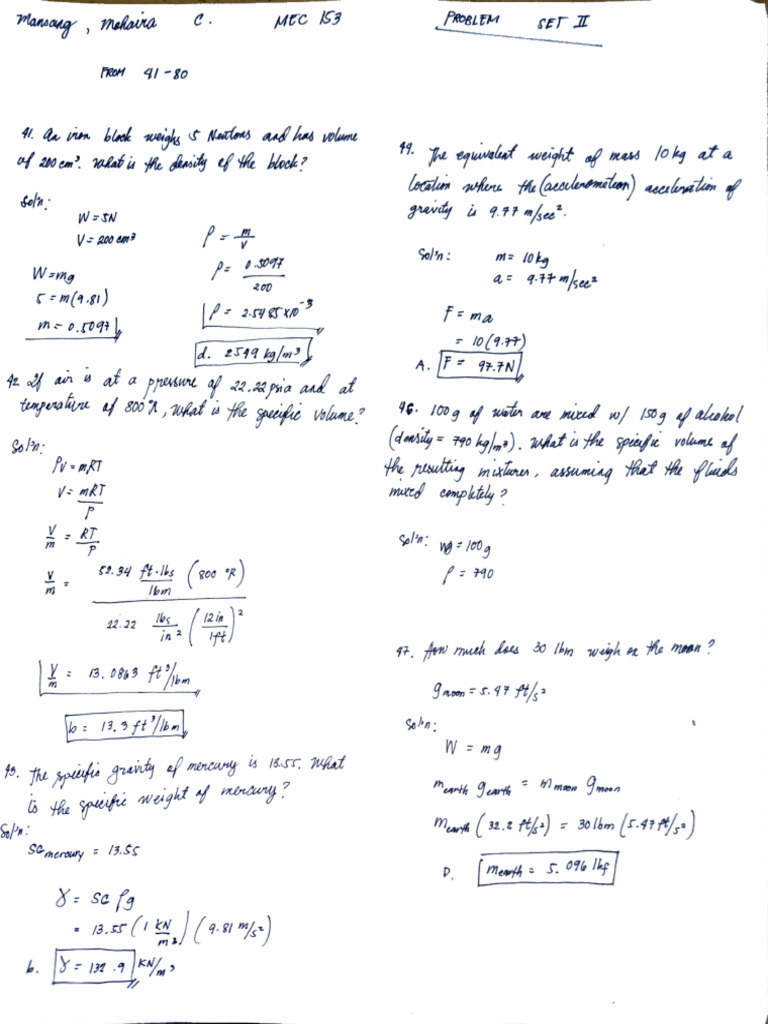 Mansang, Mohaira C. MEC 153
PROBLEM SET II
FROM 41-80
41. An iron block weighs 5 Newtons and has volume
of 200 cm³. What is the density of the block?
Sol'n:
W = 5N
V = 200 cm³
W = mg
5 = m(9.81)
m = 0.5097
ρ = m/v
ρ = 0.5097/200
ρ = 2.5485 x10⁻³
d. 2549 kg/m³
42. If air is at a pressure of 22.22 psia and at
temperature of 800°R, what is the specific volume?
Sol'n:
PV = mRT
V = mRT/P
V/m = RT/P
V/m = 52.34 ft·lbs/lbm (800 °R)
22.22 lbs/in² (12in/1ft)²
V/m = 13.0863 ft³/lbm
b = 13.3 ft³/lbm
43. The specific gravity of mercury is 13.55. What
is the specific weight of mercury?
Sol'n:
SG mercury = 13.55
γ = SG ρg
= 13.55 (1 KN/m³) (9.81 m/s²)
b. γ = 132.9 KN/m³
44. The equivalent weight of mass 10 kg at a
location where the (accelerometeon) acceleration of
gravity is 9.77 m/sec².
Sol'n: m = 10 kg
a = 9.77 m/sec²
F = ma
= 10 (9.77)
A. F = 97.7N
46. 100 g of water are mixed w/ 150 g of alcohol
(density = 790 kg/m³). What is the specific volume of
the resulting mixtures, assuming that the fluids
mixed completely?
Sol'n: = 100 g
ρ = 790
47. How much does 30 lbm weigh on the moon?
g moon = 5.47 ft/s²
Sol'n:
W = mg
m earth g earth = m moon g moon
m earth (32.2 ft/s²) = 30 lbm (5.47 ft/s²)
D. m earth = 5.096 lbf